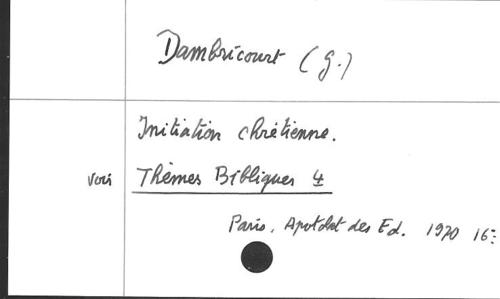 Dambricourt (G.)
Initiation chrétienne.
voir Thèmes Bibliques 4
Paris, Apostolat des Ed. 1970 16: